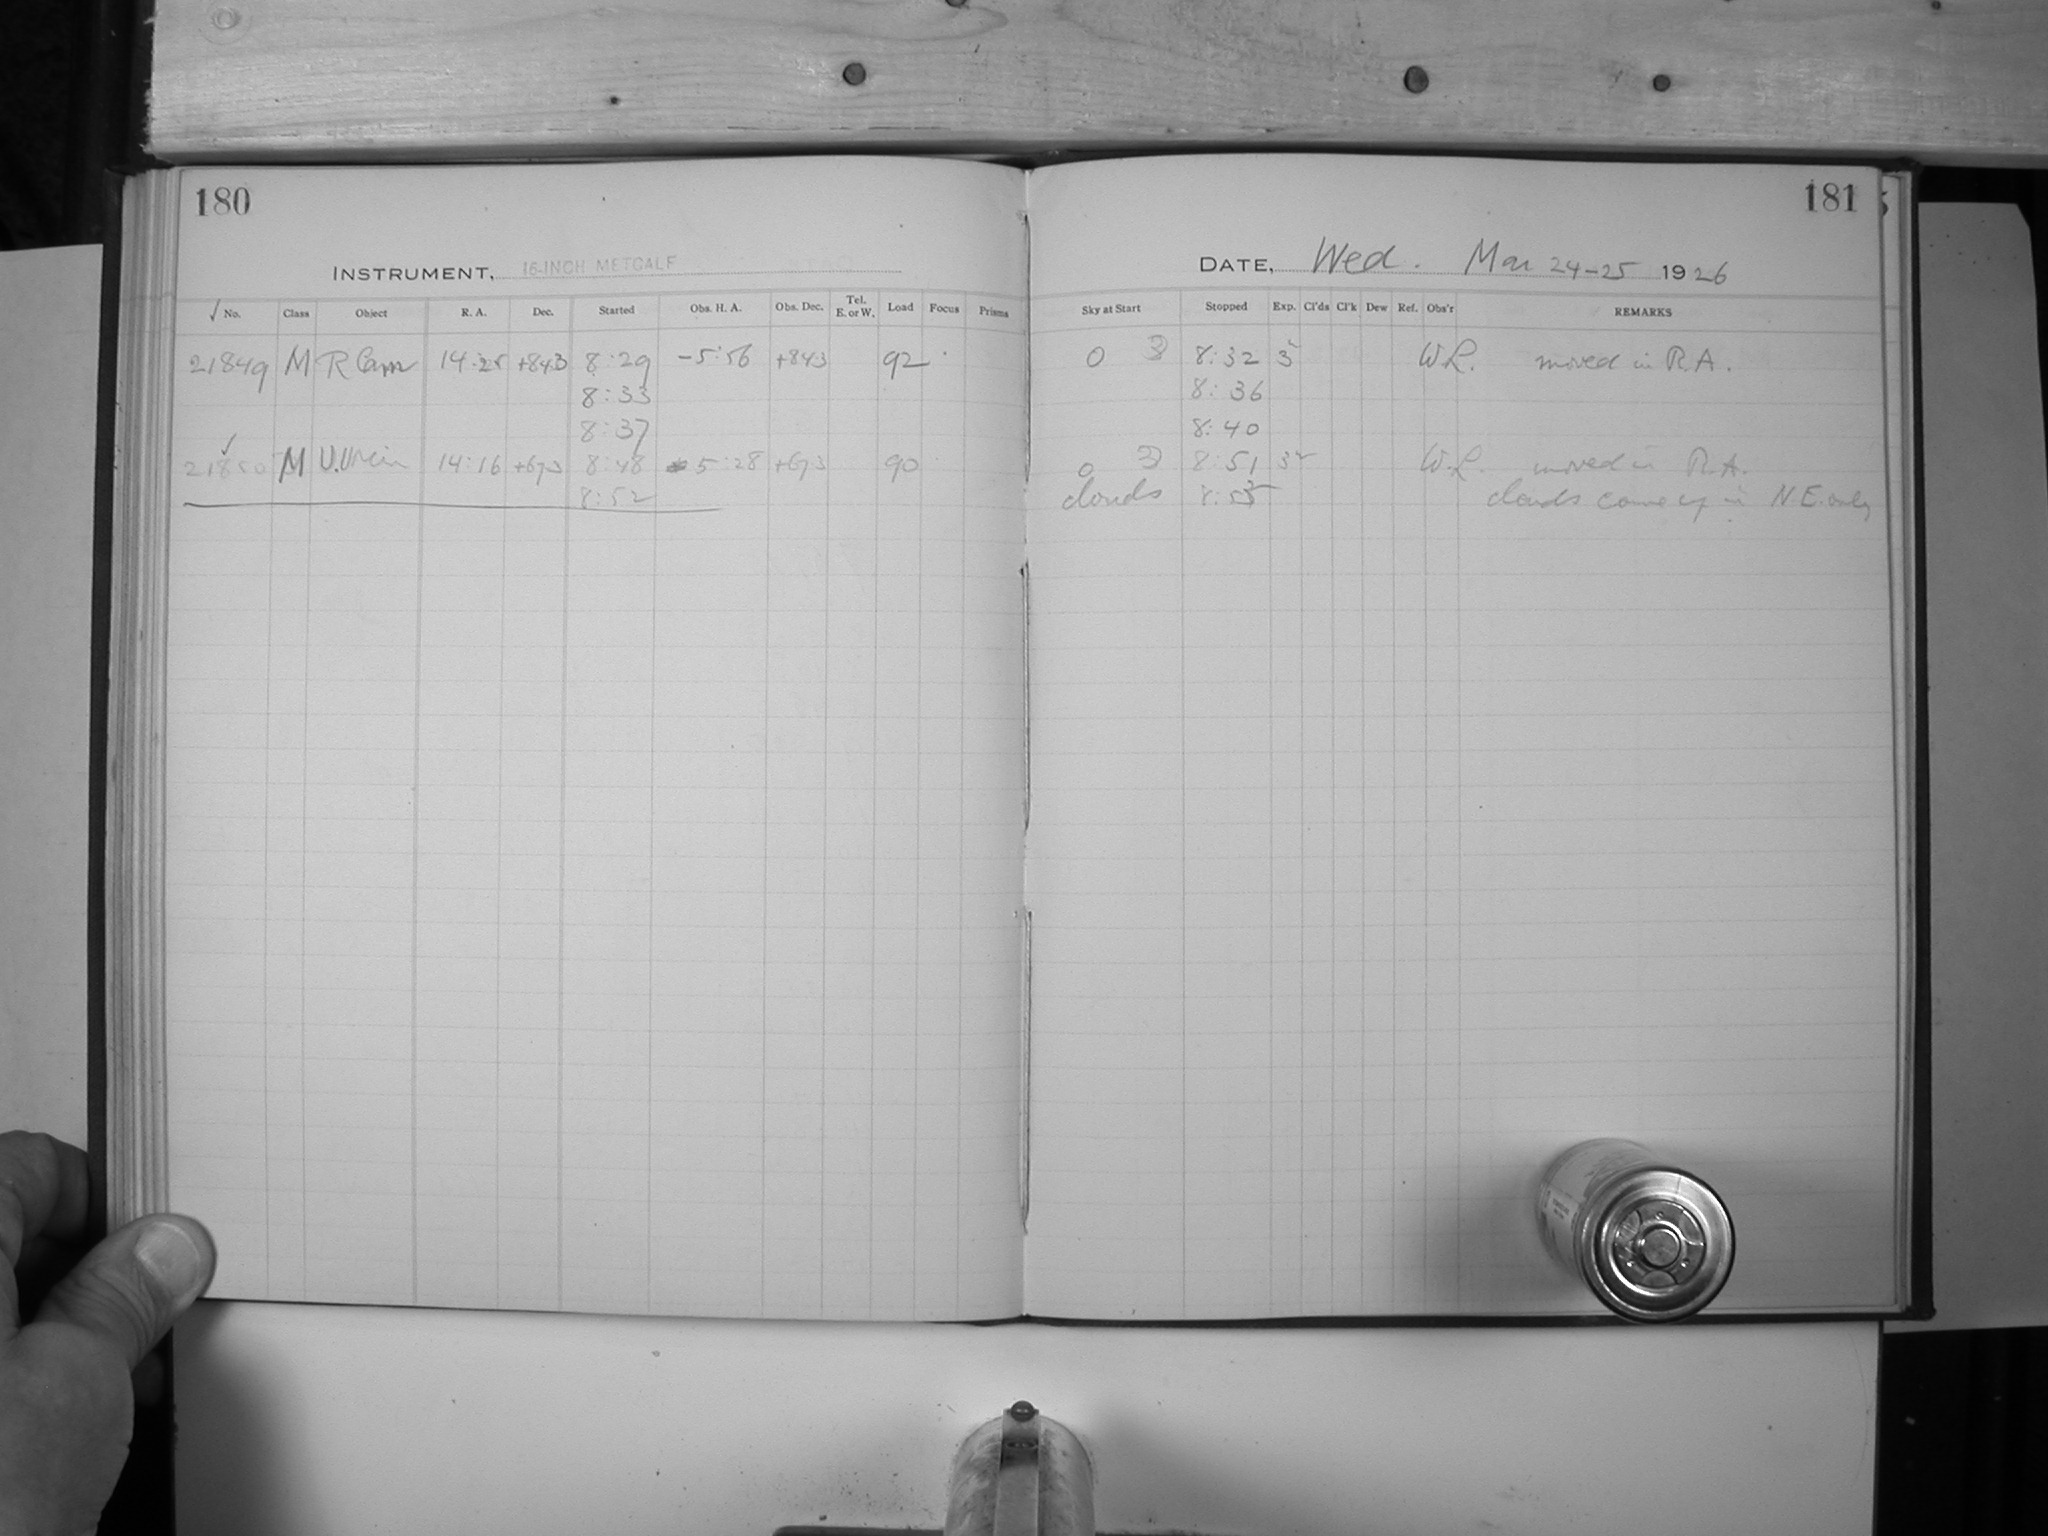 180
INSTRUMENT, 16-INCH METCALF
✓ No. Class Object R. A. Dec. Started Obs. H. A. Obs. Dec. Tel. E. or W. Load Focus Prisms
21849 M R Cam 14:25 +843 8:29 -5:56 +843 92
8:33
8:37
✓
21850 M U. Umin 14:16 +673 8:48 5:28 +673 90
8:52
181
DATE, Wed. Mar 24-25 1926
Sky at Start Stopped Exp. Cl'ds Cl'k Dew Ref. Obs'r REMARKS
0 3 8:32 3 W.R. moved in R.A.
8:36
8:40
0 3 8:51 3 W.R. moved in R.A.
clouds 8:55 clouds come up in N.E. only